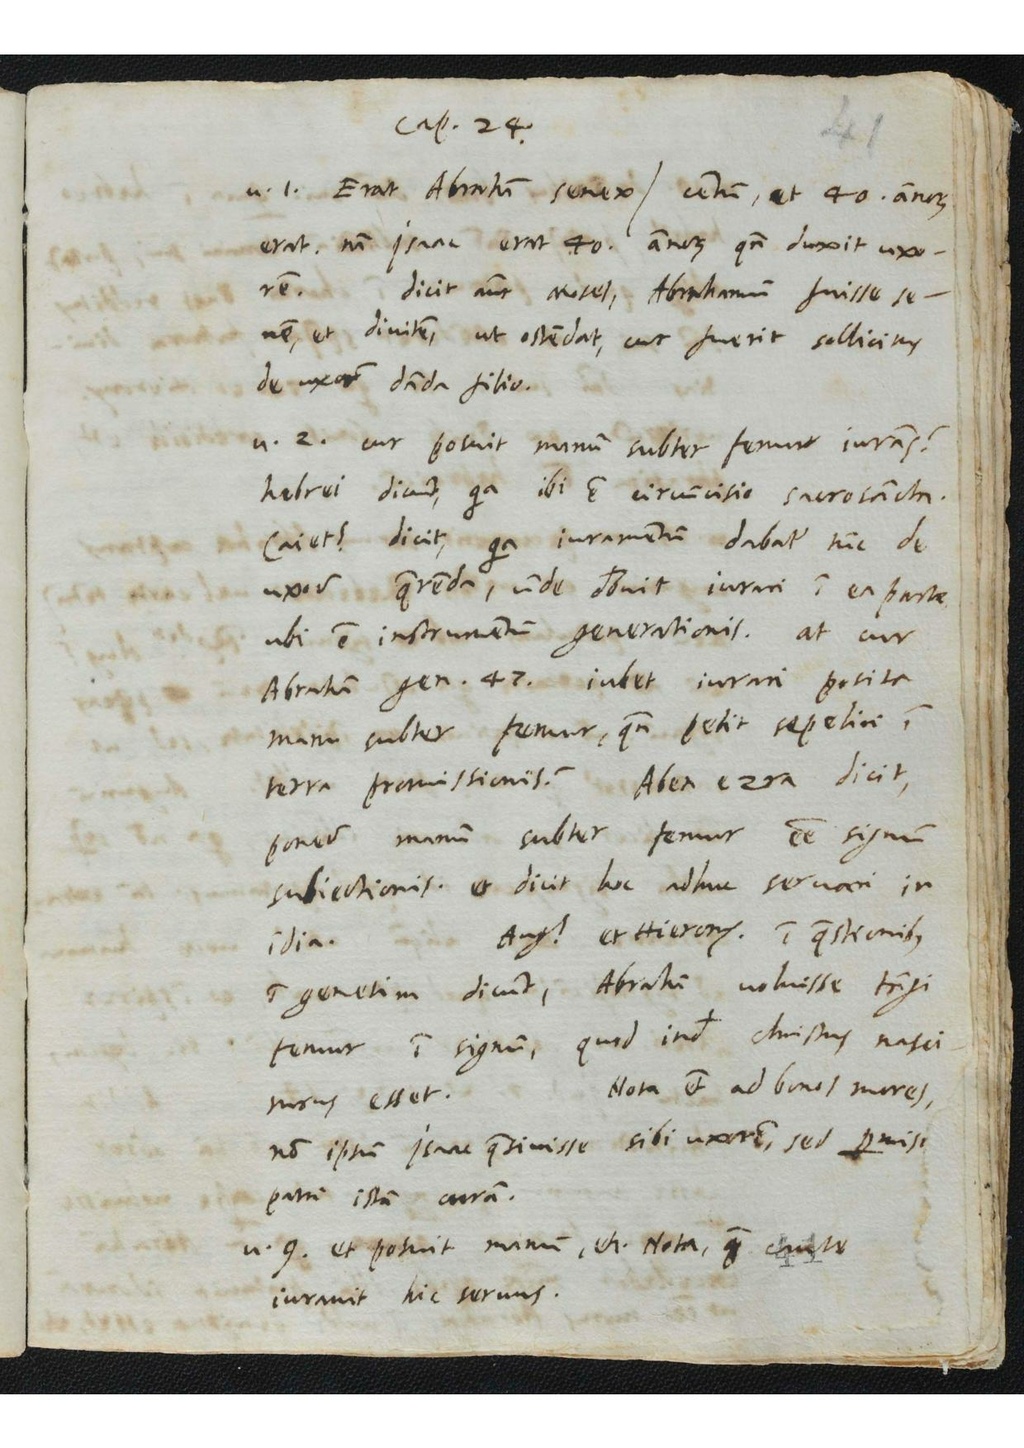 cap. 24.
41
u. 1. Erat Abrahā senex / cētū, et 40. ānoꝝ
erat. nā Isaac erat 40. ānoꝝ qn̄ duxit uxo-
rē. dicit aūt Moses, Abrahamum fuisse se-
nē, et diuitē, ut ostēdat, cur fuerit sollicitus
de uxore dāda filio.
u. 2. cur posuit manū subter femur iurās?
hebrei dicūt, qa ibi ē circūcisio sacrosācta.
Caiet. dicit, qa iuramētū dabatr tūc de
uxore q̄rēda, ūde debuit iurari ī ea parte
ubi ē instrumētū generationis. at cur
Abrahā gen. 47. iubet iurari posita
manu subter femur, qn̄ petit sepeliri ī
terra promissionis? Aben ezra dicit,
ponere manū subter femur eē signū
subiectionis. et dicit hoc adhuc seruari in
īdia. Aug. et Hierony. ī q̄stionibꝰ
ī genesim dicūt, Abrahā uoluisse tāgi
femur ī signū, quod inde christus nasci
turus esset. Nota ēt ad bonos mores,
nō ipsū Isaac q̄siuisse sibi uxorē, sed ꝑmisi
patri istā curā.
u. 9. et posuit manū, etc. Nota, q̄ caute
iurauit hic seruus.